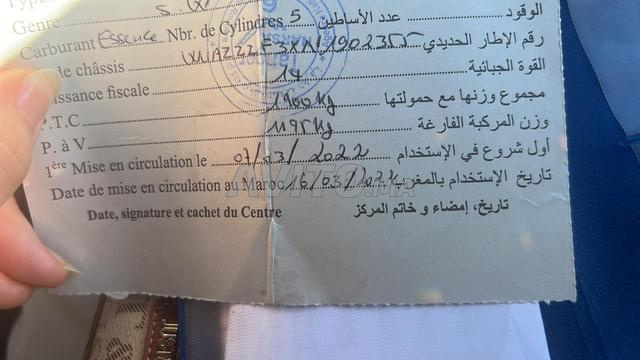 Genre
S
الوقود
Carburant Essence Nbr. de Cylindres 5 عدد الأساطين
de châssis رقم الإطار الحديدي
issance fiscale 14 القوة الجبائية
P.T.C 1900kg مجموع وزنها مع حمولتها
P. à V 1195kg وزن المركبة الفارغة
1ère Mise en circulation le 07/03/2022 أول شروع في الإستخدام
Date de mise en circulation au Maroc 16/03/2022 تاريخ الإستخدام بالمغرب
Date, signature et cachet du Centre تاريخ، إمضاء و خاتم المركز
AVITO.MA